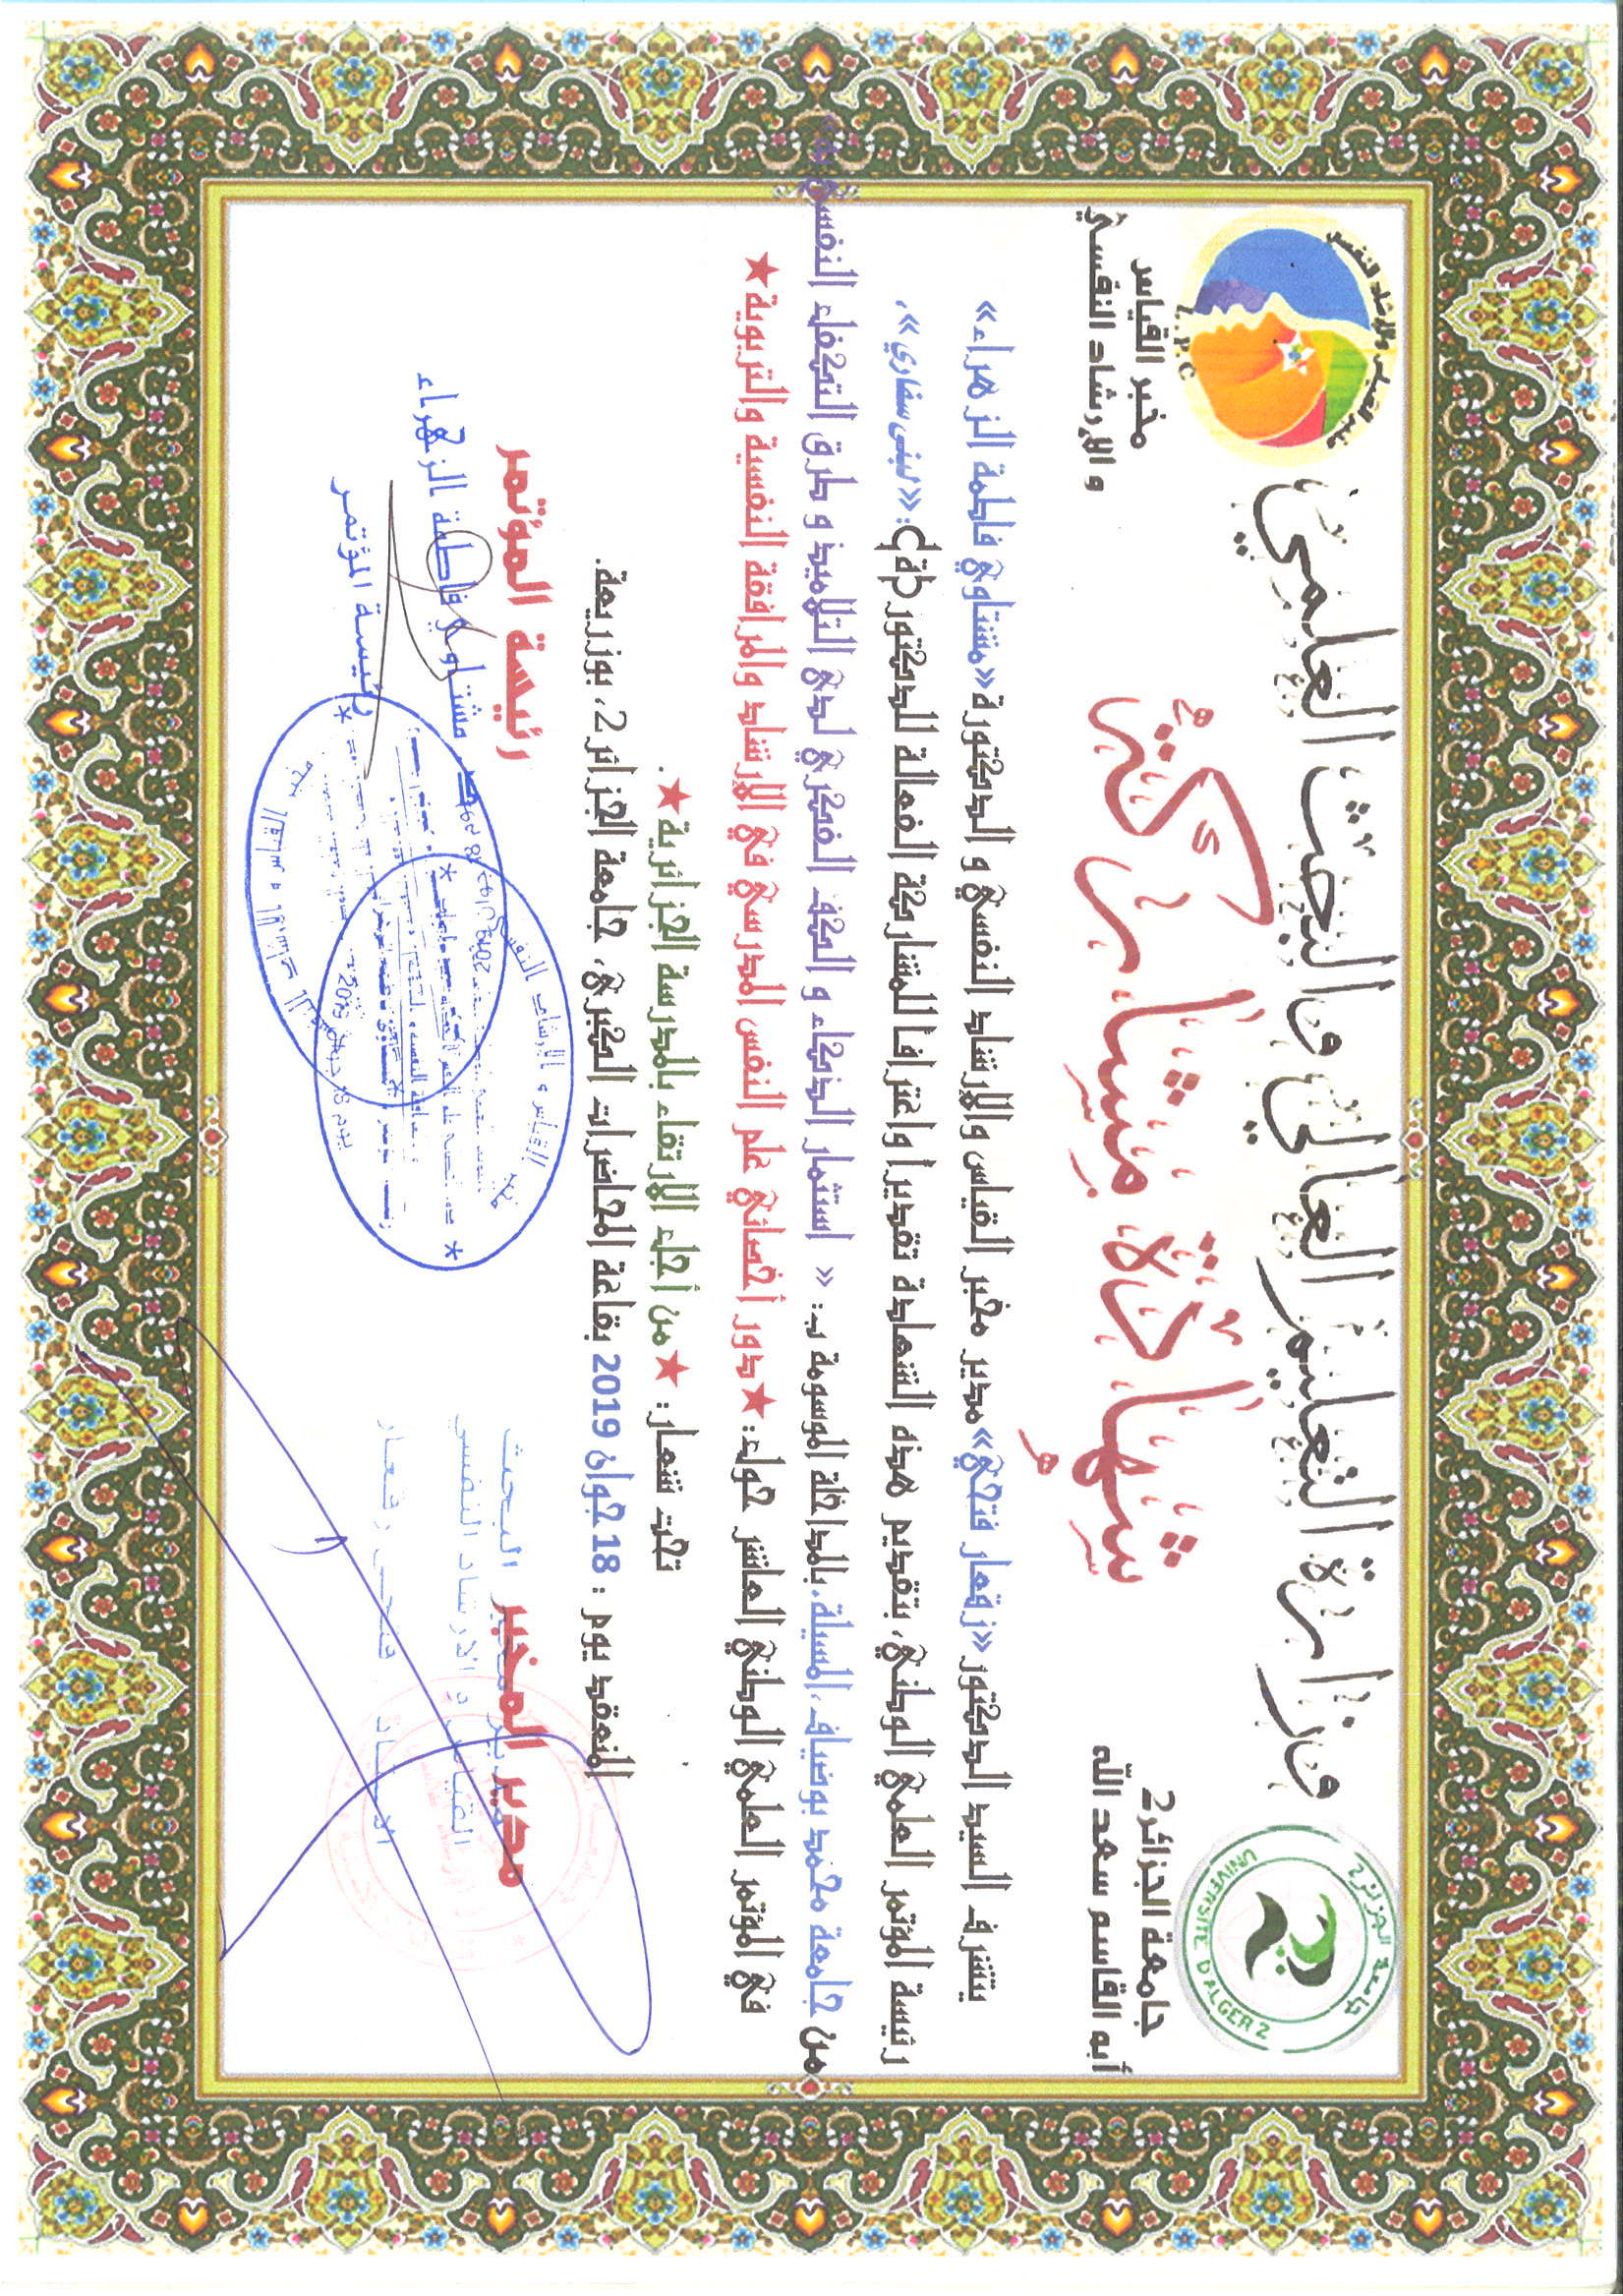 وزارة التعليم العالي والبحث العلمي
جامعة الجزائر2
أبو القاسم سعد الله
UNIVERSITE D'ALGER 2
جامعة الجزائر 2
مخبر القياس
والإرشاد النفسي
L.P.C
شهادة مشاركة
يتشرف السيد الدكتور «زقعار فتحي» مدير مخبر القياس والإرشاد النفسي و الدكتورة «مشتاوي فاطمة الزهراء»
رئيسة المؤتمر العلمي الوطني، بتقديم هذه الشهادة تقديرا واعترافا للمشاركة الفعالة للدكتور (ة): «لبنى سفاري»،
من جامعة محمد بوضياف، المسيلة، بالمداخلة الموسومة بـ: « استثمار الذكاء و الكف الفكري لدى التلاميذ و طرق التكفل النفسي
في المؤتمر العلمي الوطني العاشر حول: ★دور أخصائي علم النفس المدرسي في الإرشاد والمرافقة النفسية والتربوية★
تحت شعار: ★من أجل الارتقاء بالمدرسة الجزائرية★.
المنعقد يوم : 18 جوان 2019 بقاعة المحاضرات الكبرى، جامعة الجزائر2، بوزريعة.
مدير المخبر
رئيسة المؤتمر
مشتاوي فاطمة الزهراء
رئيسة المؤتمر
القياس والإرشاد النفسي
الأستاذ فتحي زقعار